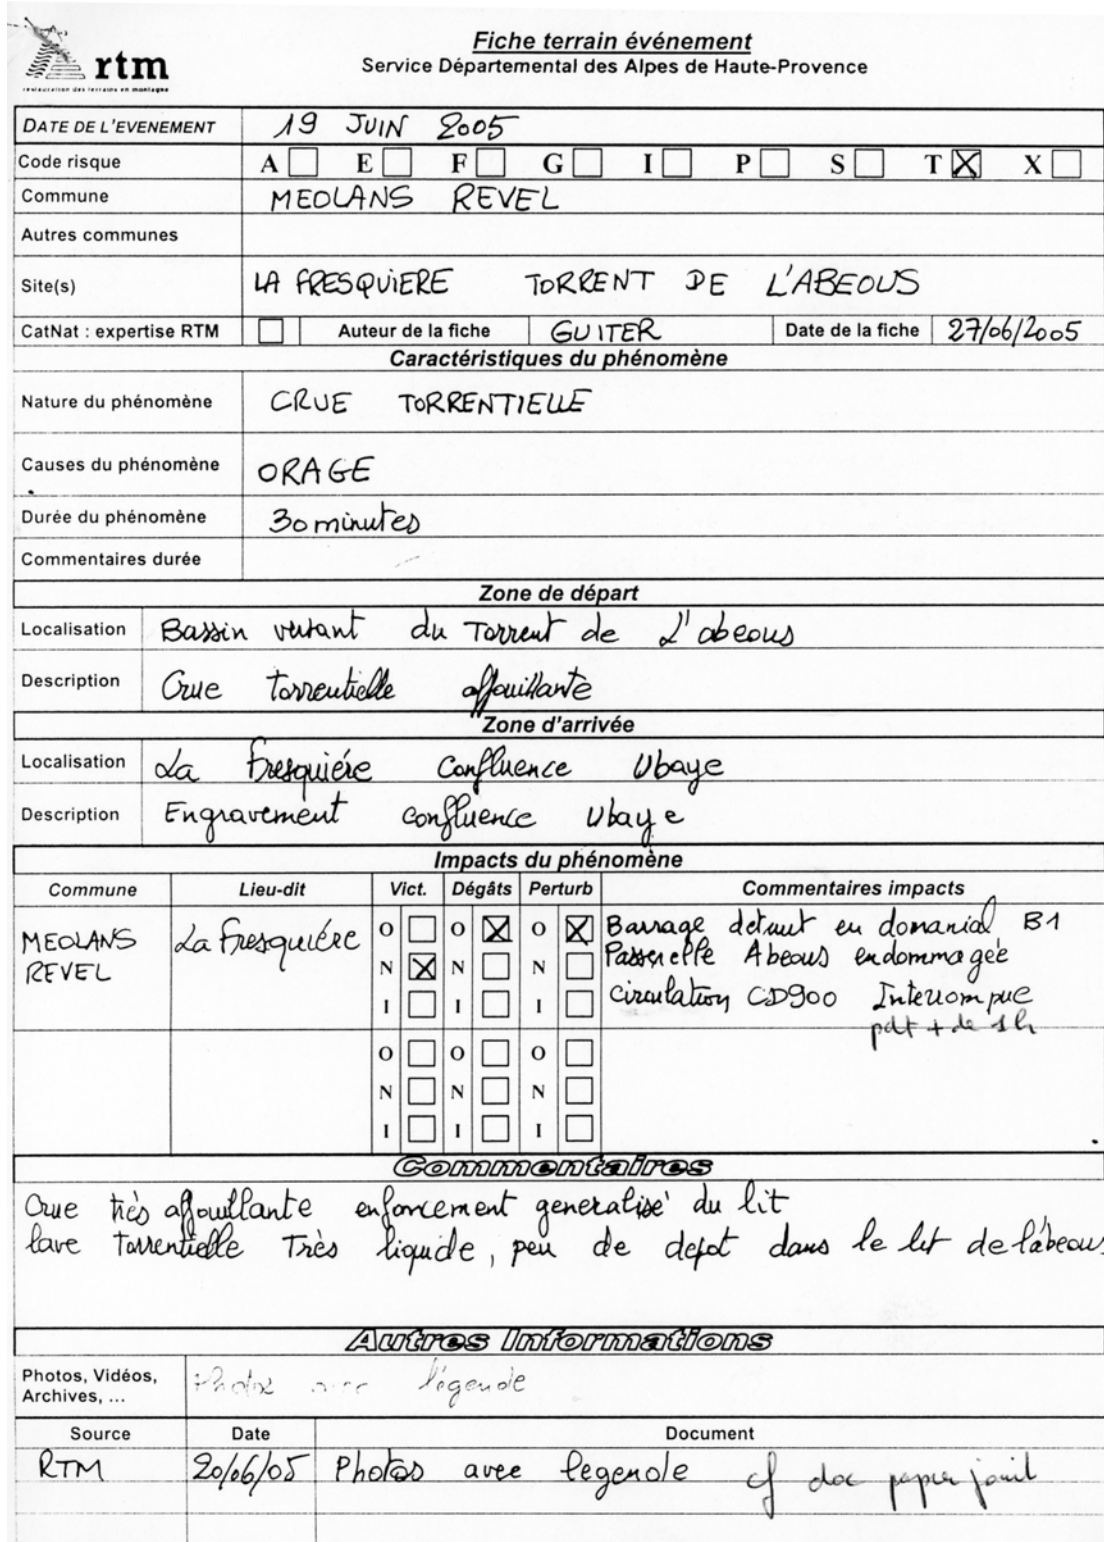 rtm
restauration des terrains en montagne
Fiche terrain événement
Service Départemental des Alpes de Haute-Provence
DATE DE L'EVENEMENT 19 JUIN 2005
Code risque A E F G I P S T X
Commune MEOLANS REVEL
Autres communes
Site(s) LA FRESQUIERE TORRENT DE L'ABEOUS
CatNat : expertise RTM Auteur de la fiche GUITER Date de la fiche 27/06/2005
Caractéristiques du phénomène
Nature du phénomène CRUE TORRENTIELLE
Causes du phénomène ORAGE
Durée du phénomène 30 minutes
Commentaires durée
Zone de départ
Localisation Bassin versant du Torrent de L'abeous
Description Crue torrentielle affouillante
Zone d'arrivée
Localisation La Fresquiére Confluence Ubaye
Description Engravement confluence Ubaye
Impacts du phénomène
Commune Lieu-dit Vict. Dégâts Perturb Commentaires impacts
MEOLANS La Fresquiére O O O Barrage detruit en domanial B1
REVEL N N N Passerelle Abeous endommagée
I I I Circulation CD900 Interrompue
pdt + de 1h
O O O
N N N
I I I
Commentaires
Crue très affouillante enfoncement generalisé du lit
lave torrentielle Très liquide, peu de depot dans le lit de l'abeous
Autres Informations
Photos, Vidéos, Photos avec légende
Archives, ...
Source Date Document
RTM 20/06/05 Photos avec legende cf doc papier joint